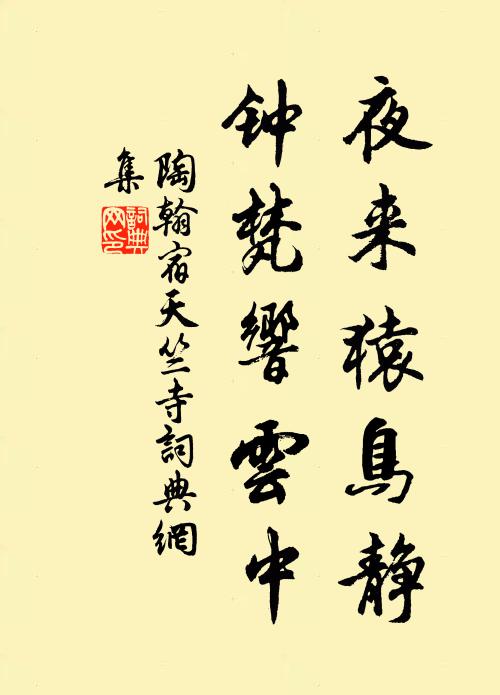 夜来猿鳥静
钟梵響雲中
陶翰宿天竺寺詞典網
集
詞典网印